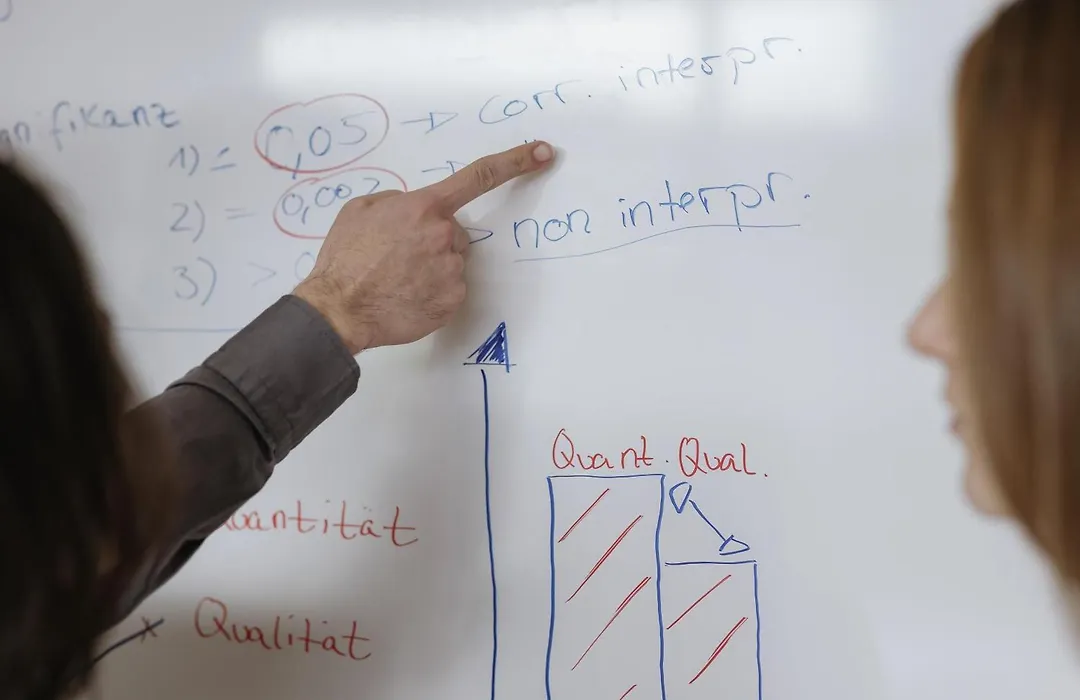 nifikanz
1) ≤ 0,05 → corr. interpr.
2) = 0,002 →
3) > 0 → non interpr.
Quant. Qual.
uantität
x Qualität